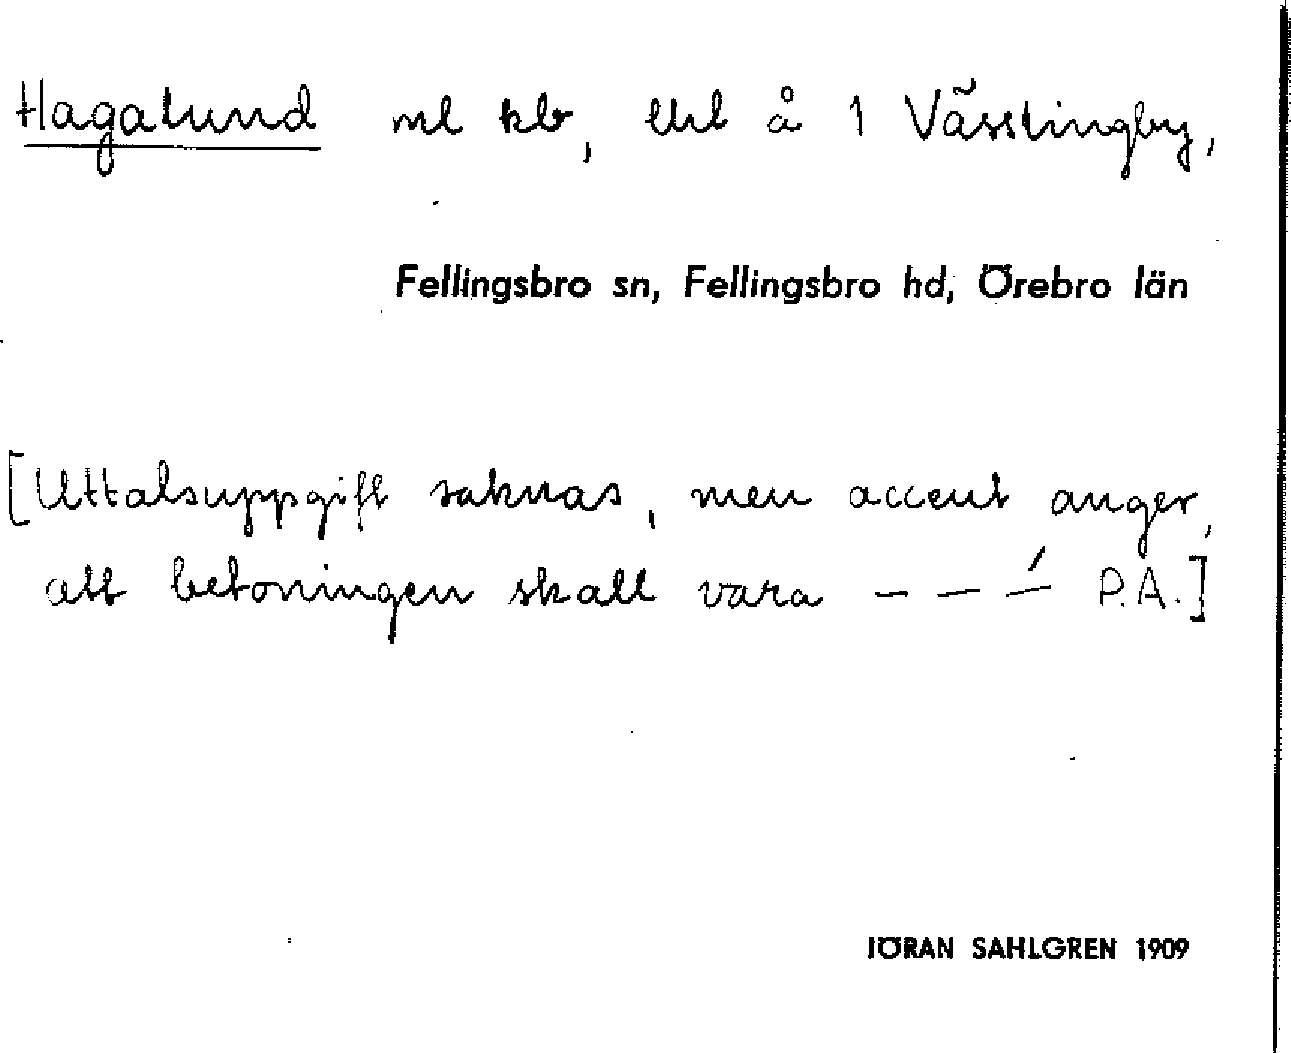 Hagalund ml kb, Ekl å 1 Vässlingby,
Fellingsbro sn, Fellingsbro hd, Örebro län
[Uttalsuppgift saknas, men accent anger,
att betoningen skall vara – – –́ P.A.]
JÖRAN SAHLGREN 1909